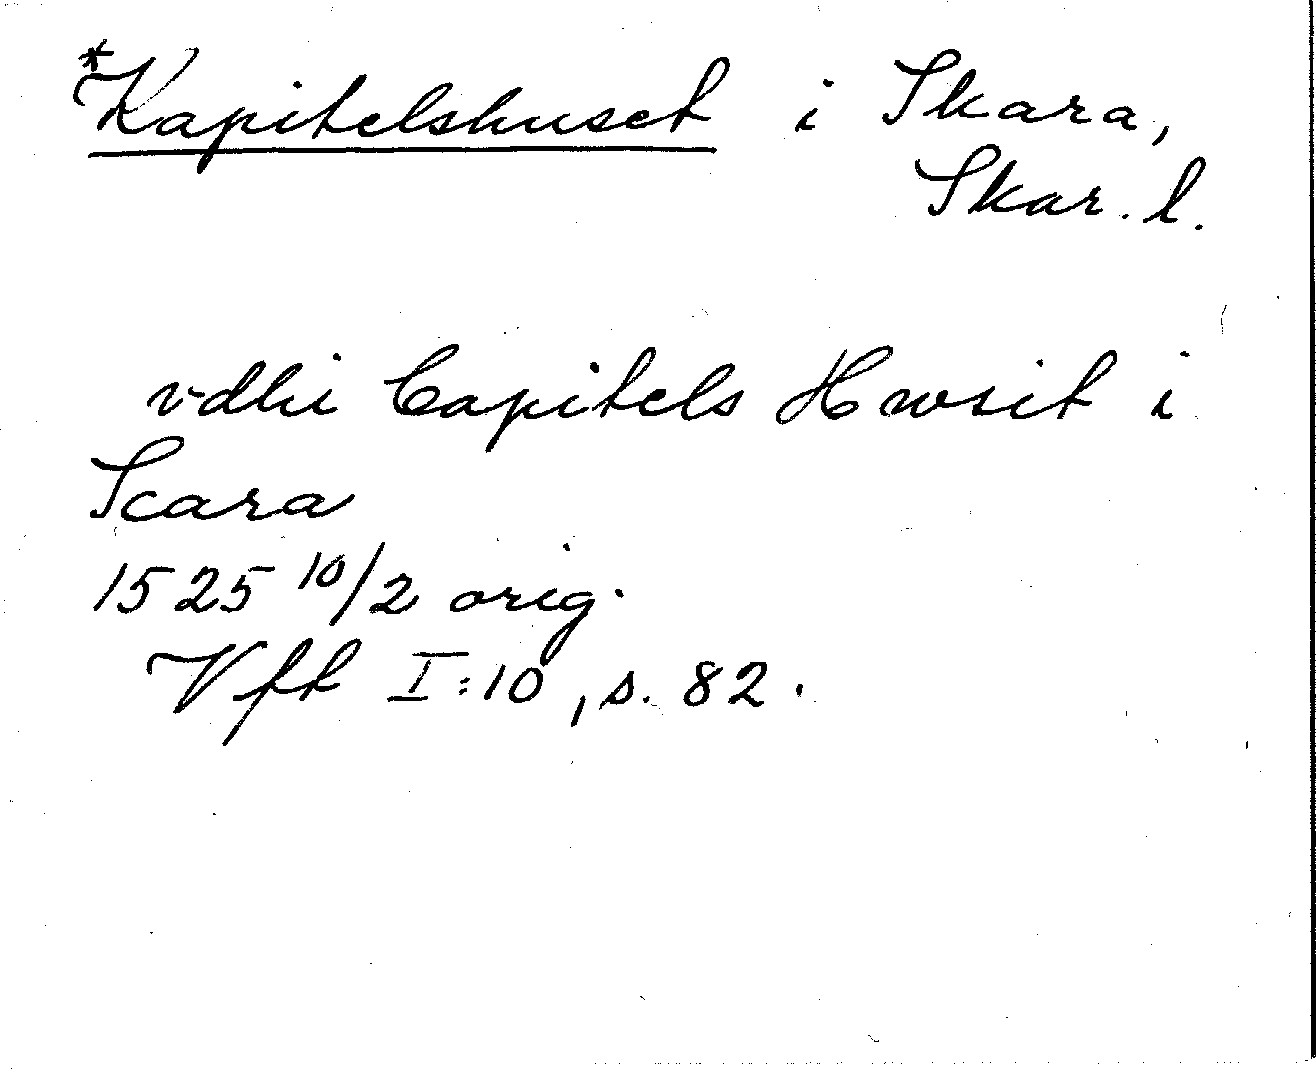 *Kapitelshuset i Skara,
Skar. l.
vdhi Capitels Hwsit i
Scara
1525 10/2 orig.
Vft I:10, s. 82.